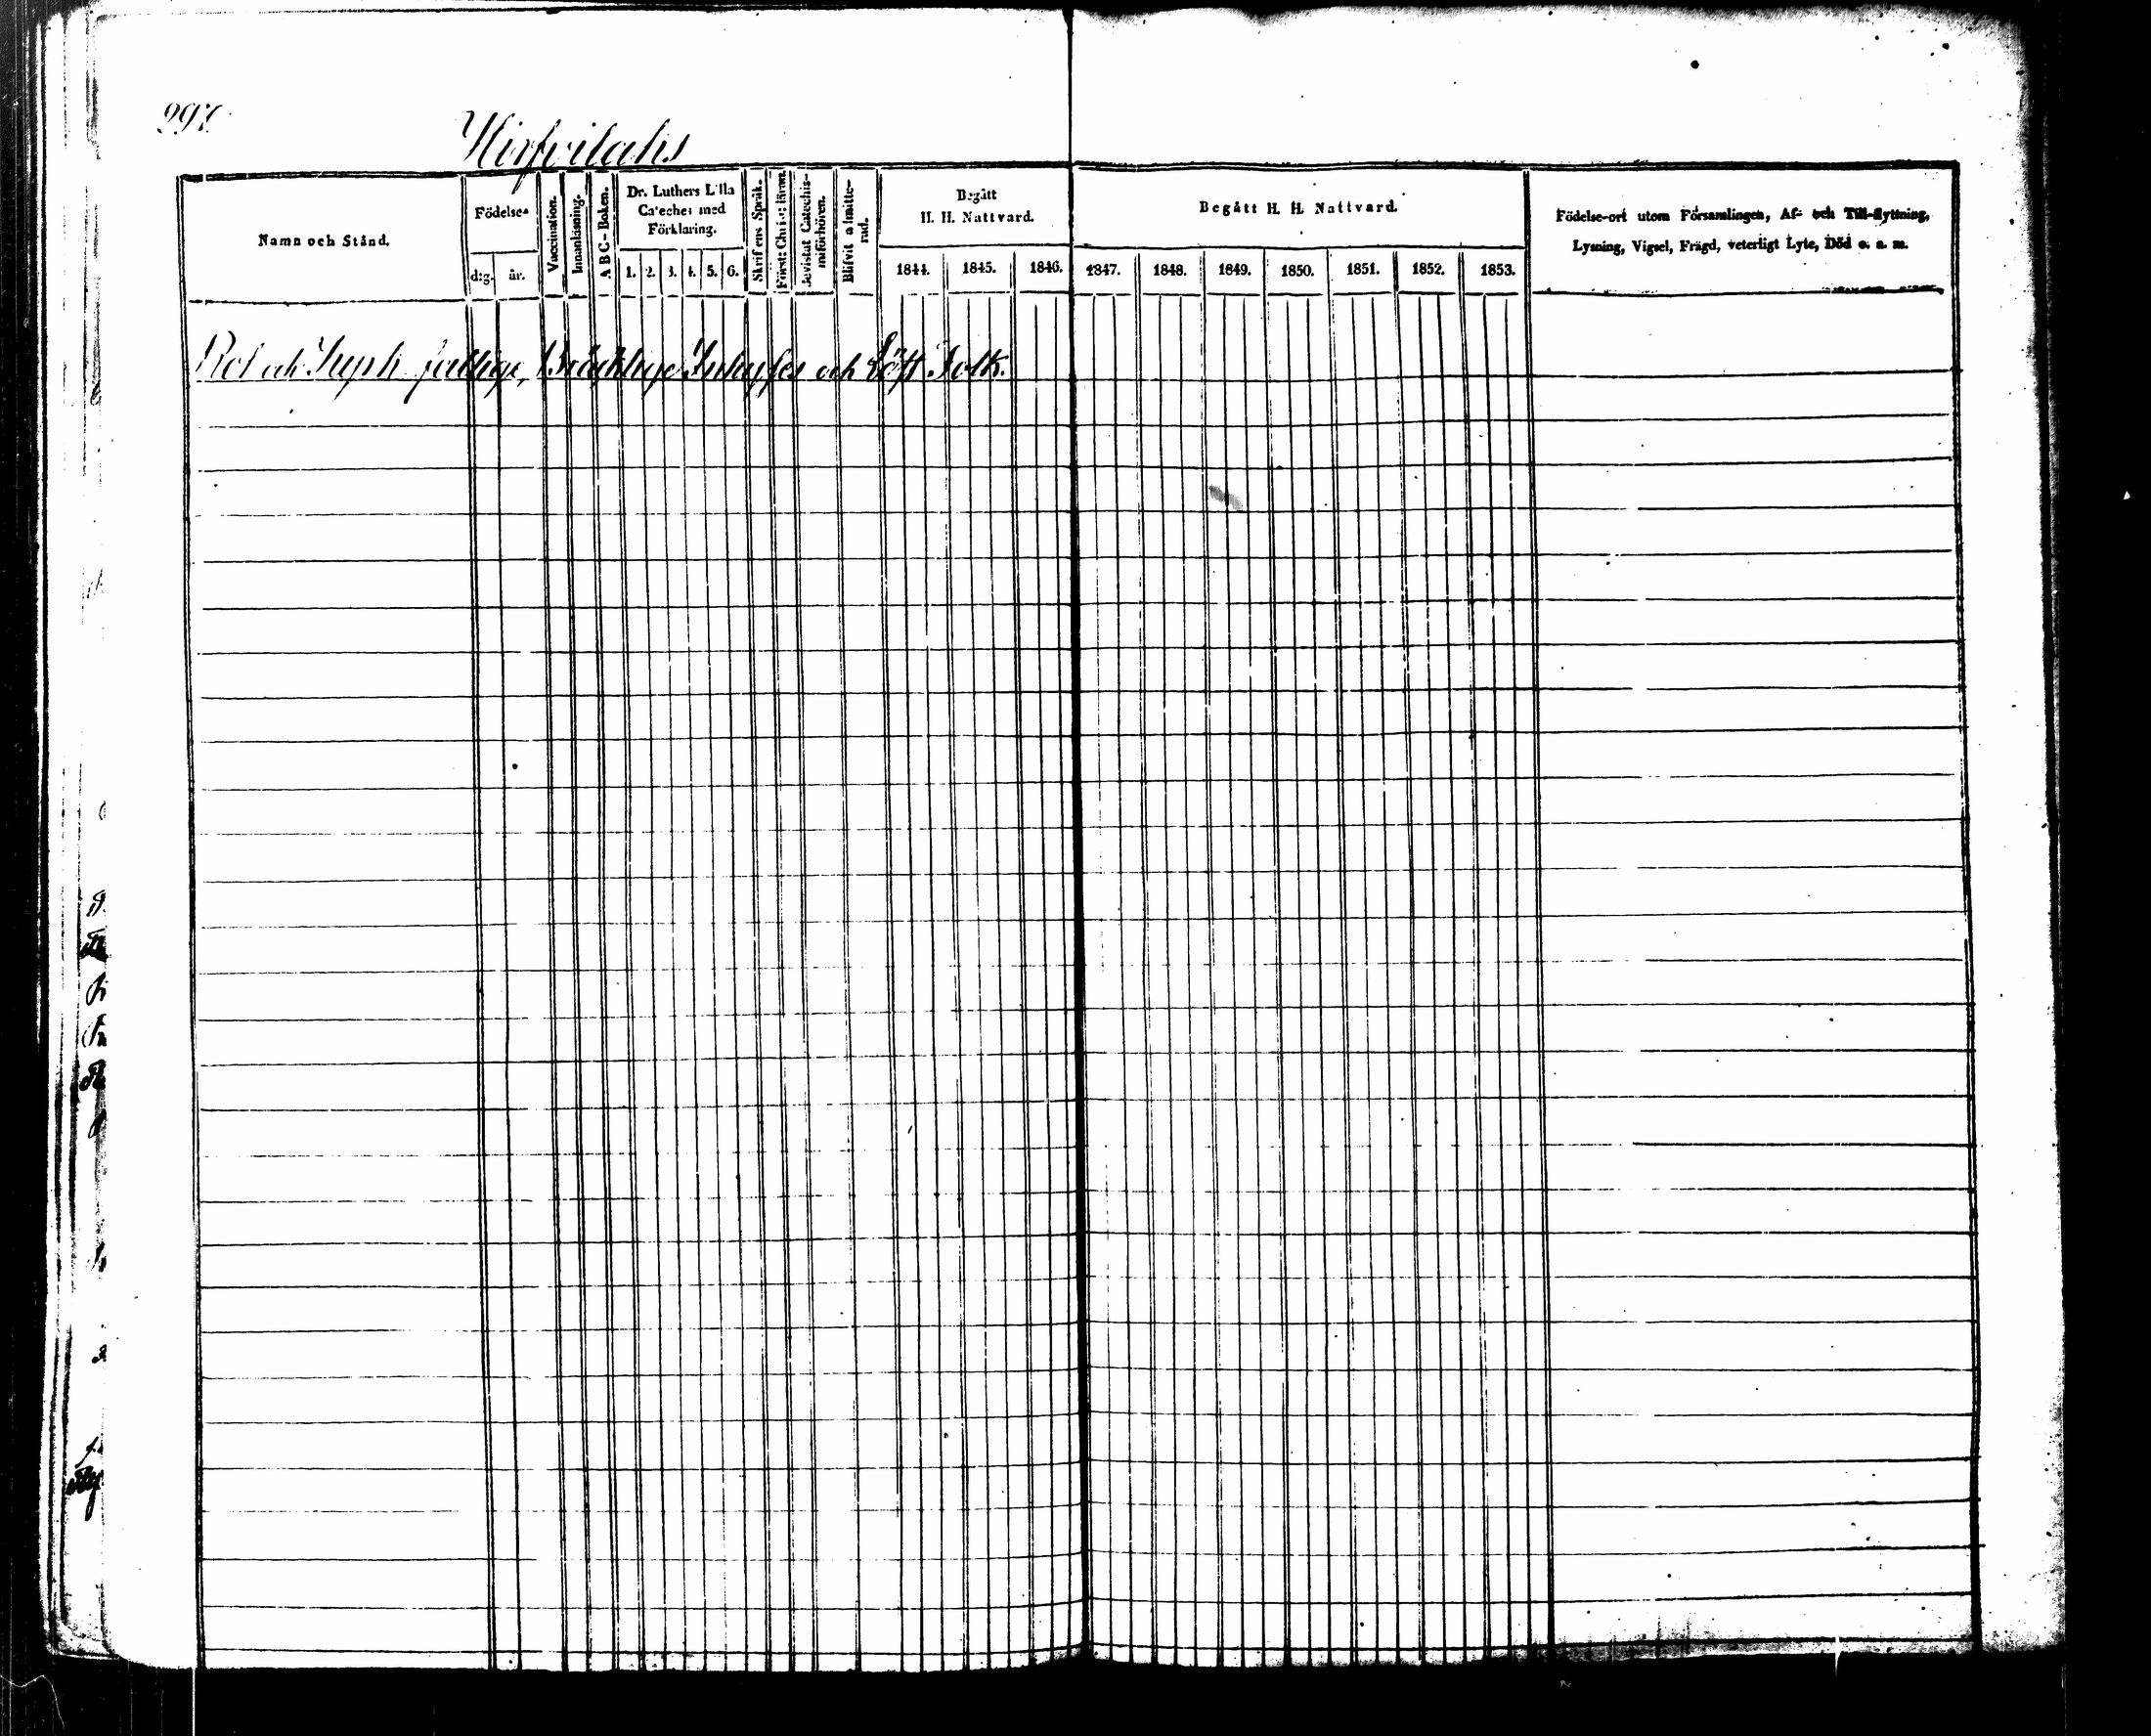 297.
Hirfvilahs
Namn och Stånd.
Födelse-
dag.
år.
Vaccination.
Innanläsning.
A B C-Boken.
Dr. Luthers Lilla
Cateches med
Förklaring.
1. 2. 3. 4. 5. 6.
Skriftens Språk.
Först: Christ: läran.
Bevistat Catechis-
miförhören.
Blifvit admitte-
rad.
Begått
H. H. Nattvard.
1844. 1845. 1846.
Begått H. H. Nattvard.
1847. 1848. 1849. 1850. 1851. 1852. 1853.
Födelse-ort utom Församlingen, Af- och Till-flyttning,
Lysning, Vigsel, Frägd, veterligt Lyte, Död o. a. m.
Rot och fattige, Bräcklige Inhyses och Löst Folk.